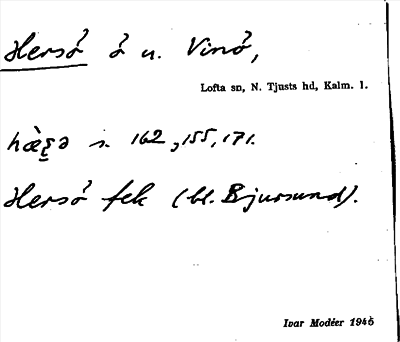 Hersö ö n. Vinö,
Lofta sn, N. Tjusts hd, Kalm. l.
s. 162, 155, 171.
Hersö fek (bl. Bjursund).
Ivar Modéer 1946